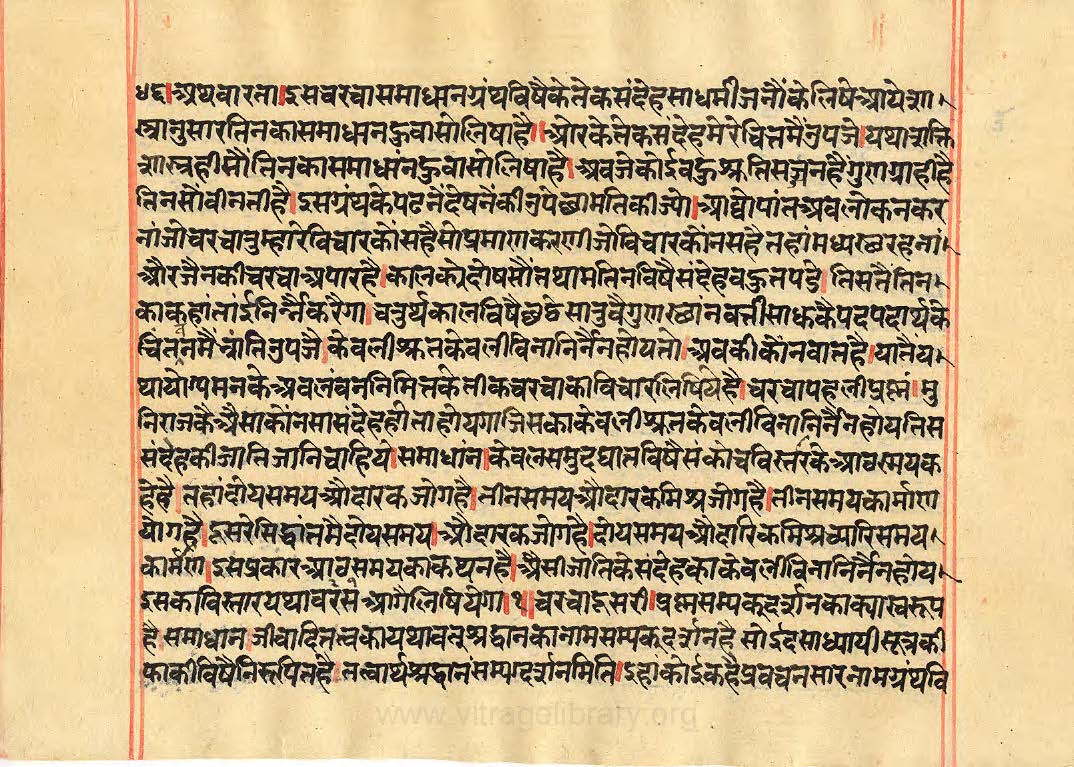 अथ वारता । इस चरचा समाधान ग्रंथ विषै केतेक संदेह साधर्मी जनौं के लिषे आये शा
स्त्रानुसार तिनका समाधान हुवा सो लिषा है । और केतेक संदेह मेरे चित्त मैं उपजे । यथाशक्ति
शास्त्र ही सौं तिनका समाधान हुवा सो लिषा है । अब जे कोई बहुश्रुति सज्जन हैं गुणग्राही है
तिन सौं वीनती है । इस ग्रंथ के पढनें देषनें की उपेछा मति कीज्यो । आद्योपांत अवलोकन कर
नां जो चरचा तुम्हारे विचार कौं सहै सो प्रमाण करणी जो विचार कौं न सहै तहां मध्यस्थ रहनां ।
और जैन की चरचा अपार है । काल के दोष सौं तथा मति न विषै संदेह बहुत पडे । तिस तैं तिन
का कहां तांई निर्नै करैगा । चतुर्थ काल विषै छठे सातवै गुणस्थानवर्त्ती साधु कै पद पदार्थ के
चिंतन मैं भ्रांति उपजै केवली श्रुतकेवली विना निर्नै न होय तो । अब की कौन बात है । या तैं य
था योग्य मन के अवलंबन निमित्त केतीक चरचा का विचार लिषिये है । चरचा पहली प्रश्नं । मु
निराज कै ऐसा कौंनसा संदेह होता होयगा जिसका केवली श्रुतकेवली विना निर्नै न होय तिस
संदेह की जाति जानि चाहिये । समाधांन । केवल समुदघात विषै संकोच विस्तर के आठ समय क
हे है । तहां दोय समय औदारक जोग है । तीन समय औदारक मिश्र जोग है । तीन समय कार्माण
योग है । दूसरे सिद्धांत मै दोय समय । औदारक जोग है । दोय समय औदारिक मिश्र च्यारि समय
कार्मण । इस प्रकार आठ समय का कथन है । ऐसी जाति के संदेह का केवली विना निर्नै न होय ।
इसका विस्तार यथावसर सें आगै लिषियेगा । १ । चरचा दूसरी । प्रश्न सम्यक् दर्शन का क्या स्वरूप
है समाधान जीवादि तत्व का यथावत् श्रद्धान का नाम सम्यक् दर्शन है सोई दसाध्यायी सूत्र की
विषै निरूपित है । तत्वार्थ श्रद्धानं सम्यग्दर्शनमिति । इहां कोई कहै प्रवचनसार नाम ग्रंथ वि
www.vitragelibrary.org